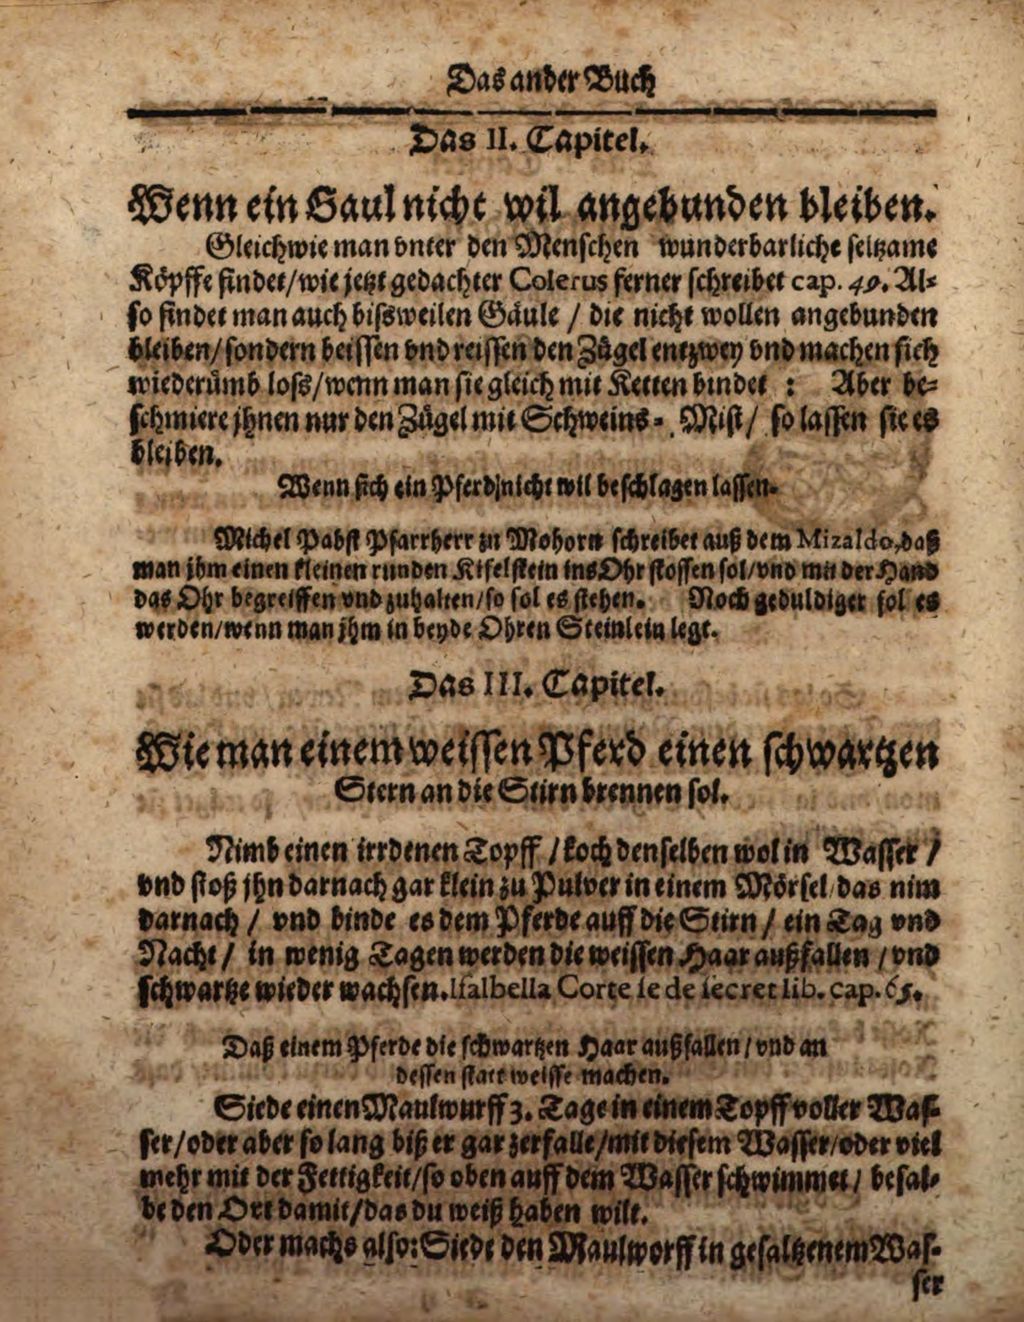 Das ander Buch
Das II. Capitel.
Wenn ein Gaul nicht wil angebunden bleiben.
Gleichwie man vnter den Menschen wunderbarliche seltzame
Köpffe findet/wie jetzt gedachter Colerus ferner schreibet cap. 49. Al=
so findet man auch bißweilen Gäule / die nicht wollen angebunden
bleiben/sondern beissen vnd reissen den Zügel entzwey vnd machen sich
wiederümb loß/wenn man sie gleich mit Ketten bindet : Aber be=
schmiere jhnen nur den Zügel mit Schweins=Mist/ so lassen sie es
bleiben.
Wenn sich ein Pferd nicht wil beschlagen lassen.
Michel Pabst Pfarrherr zu Mohorn schreibet auß dem Mizaldo, daß
man jhm einen kleinen runden Kiselstein ins Ohr stossen sol/vnd mit der Hand
das Ohr begreiffen vnd zuhalten/so sol es stehen. Noch geduldiger sol es
werden/wenn man jhm in beyde Ohren Steinlein legt.
Das III. Capitel.
Wie man einem weissen Pferd einen schwartzen
Stern an die Stirn brennen sol.
Nimb einen irrdenen Topff / koch denselben wol in Wasser /
vnd stoß jhn darnach gar klein zu Pulver in einem Mörsel/das nim
darnach / vnd binde es dem Pferde auff die Stirn / ein Tag vnd
Nacht / in wenig Tagen werden die weissen Haar außfallen / vnd
schwartze wieder wachsen. Isalbella Corte se de secret lib. cap. 65.
Daß einem Pferde die schwartzen Haar außfallen / vnd an
dessen statt weisse machen.
Siede einen Maulwurff 3. Tage in einem Topff voller Was=
ser/oder aber so lang biß er gar zerfalle/mit diesem Wasser/oder viel
mehr mit der Fettigkeit/so oben auff dem Wasser schwimmet / besal=
be den Ort damit/das du weiß haben wilt.
Oder machs also: Siede den Maulworff in gesaltzenem Was=
ser